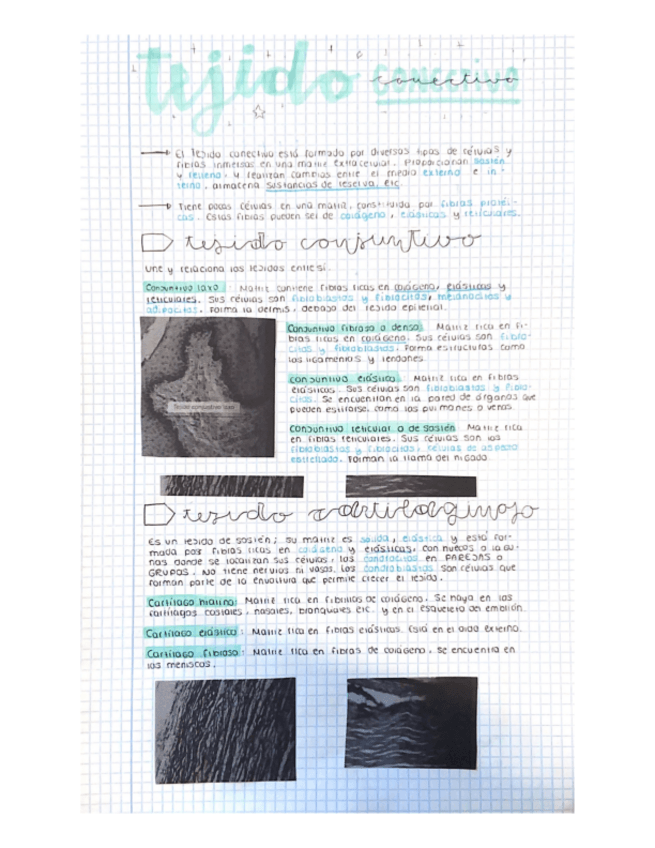 tejido conectivo
→ El tejido conectivo está formado por diversos tipos de células y
fibras inmersas en una matriz extracelular. Proporcionan sostén
y relleno, y realizan cambios entre el medio externo e in-
terno, almacena sustancias de reserva, etc.
→ Tiene pocas células en una matriz, constituida por fibras protéi-
cas. Estas fibras pueden ser de colágeno, elásticas y reticulares.
tejido conjuntivo
Une y relaciona los tejidos entre sí.
Conjuntivo laxo: Matriz contiene fibras ricas en colágeno, elásticas y
reticulares. Sus células son fibroblastos y fibrocitos, melanocitos y
adipocitos. Forma la dermis, debajo del tejido epitelial.
Tejido conjuntivo laxo
Conjuntivo fibroso o denso: Matriz rica en fi-
bras ricas en colágeno. Sus células son fibro-
citos y fibroblastos. Forma estructuras como
los ligamentos y tendones.
conjuntivo elástico: Matriz rica en fibras
elásticas. Sus células son fibroblastos y fibro-
citos. Se encuentran en la pared de órganos que
pueden estirarse, como los pulmones o venas.
Conjuntivo reticular o de sostén: Matriz rica
en fibras reticulares. Sus células son los
fibroblastos y fibrocitos; células de aspecto
estrellado. Forman la trama del hígado.
tejido cartilaginoso
Es un tejido de sostén; su matriz es sólida, elástica y está for-
mada por fibras ricas en colágeno y elásticas, con huecos o lagu-
nas donde se localizan sus células, los condrocitos en PAREJAS o
GRUPOS. No tiene nervios ni vasos. Los condroblastos son células que
forman parte de la envoltura que permite crecer el tejido.
Cartílago hialino: Matriz rica en fibrillas de colágeno. Se haya en los
cartílagos costales, nasales, bronquiales etc. y en el esqueleto del embrión.
Cartílago elástico: Matriz rica en fibras elásticas. Está en el oído externo.
Cartílago fibroso: Matriz rica en fibras de colágeno. Se encuentra en
los meniscos.